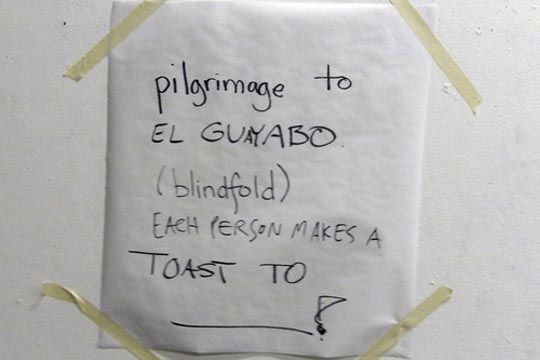 pilgrimage to
EL GUAYABO.
(blindfold)
EACH PERSON MAKES A
TOAST TO
______!